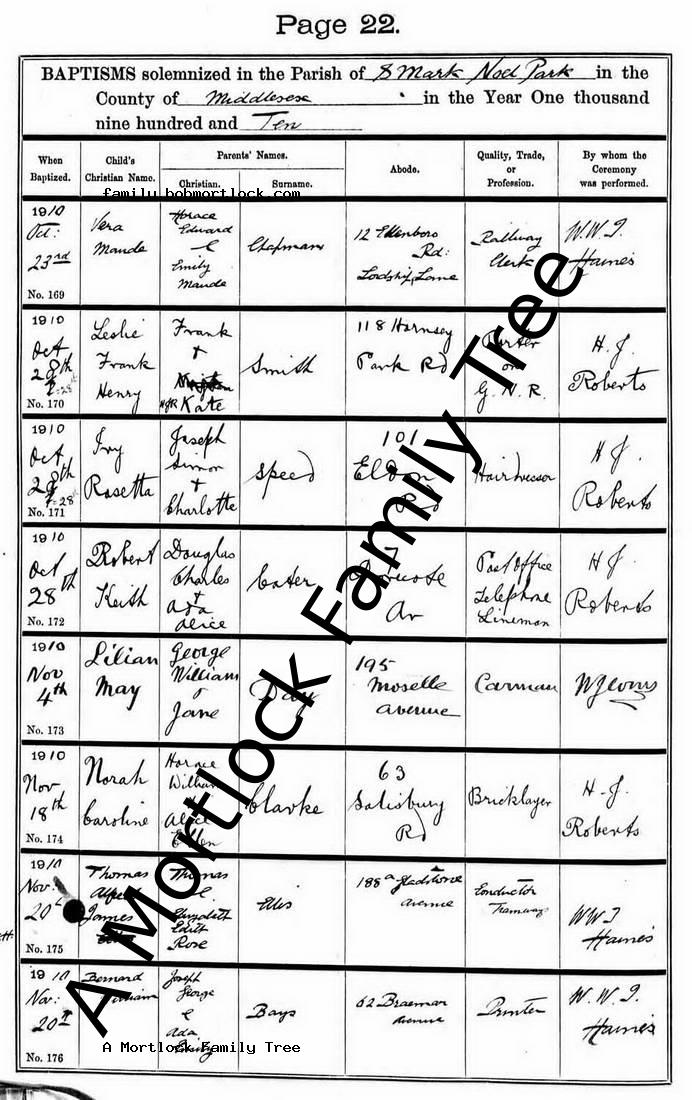 Page 22.
BAPTISMS solemnized in the Parish of S Mark Noel Park in the
County of Middlesex in the Year One thousand
nine hundred and Ten
When Baptized.
Child's Christian Name.
Parents' Names.
Christian.
Surname.
Abode.
Quality, Trade, or Profession.
By whom the Ceremony was performed.
family.bobmortlock.com
1910
Oct:
23rd
No. 169
Vera
Maude
Horace
Edward
&
Emily
Maude
Chapman
12 Ellenboro
Rd:
Lordship Lane
Railway
Clerk
W. W. J.
Haines
1910
Oct
28th
No. 170
Leslie
Frank
Henry
Frank
+
HJR Kate
Smith
118 Hornsey
Park Rd
Porter
on
G. N. R.
H. J.
Roberts
1910
Oct
28th
No. 171
Ivy
Rosetta
Joseph
Simon
+
Charlotte
Speed
101
Eldon
Rd
Hairdresser
H J.
Roberts
1910
Oct
28th
No. 172
Robert
Keith
Douglas
Charles
+
Ada
Alice
Cater
7
Av
Post Office
Telephone
Lineman
H J.
Roberts
1910
Nov
4th
No. 173
Lilian
May
George
William
&
Jane
Day
195
Moselle
Avenue
Carman
1910
Nov
18th
No. 174
Norah
Caroline
Horace
William
Alice
Ellen
Clarke
63
Salisbury
Rd
Bricklayer
H. J.
Roberts
1910
Nov:
20
No. 175
Thomas
Alfred
James
Thomas
&
Elizabeth
Edith
Rose
Ellis
188a Gladstone
Avenue
Conductor
Tramways
W W J
Haines
1910
Nov:
20th
No. 176
Bernard
William
Joseph
George
&
Ada
Emily
Bays
62 Braemar
Avenue
Printer
W. W. J.
Haines
A Mortlock Family Tree
A Mortlock Family Tree